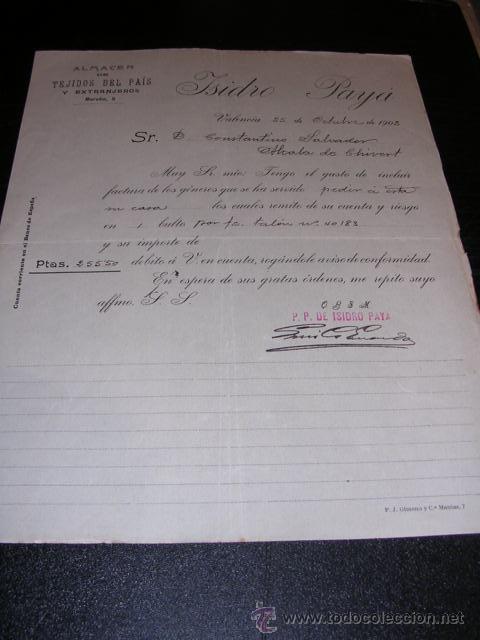 ALMACEN
DE
TEJIDOS DEL PAÍS
Y EXTRANJEROS
Isidro Payá
Valencia 25 de Octubre de 1903
Sr. D. Constantino Salvador
Alcala de Chivert
Muy Sr. mío: Tengo el gusto de incluir
factura de los géneros que se ha servido pedir á esta
su casa los cuales remito de su cuenta y riesgo
en 1 bulto por f.c. talón nº 40183
y su importe de
Ptas. 255'50 debito á V. en cuenta, rogándole aviso de conformidad.
En espera de sus gratas órdenes, me repito suyo
affmo. S. S.
P. P. DE ISIDRO PAYA
Cuenta corriente en el Banco de España
P. J. Gimeno y C.ª
todocoleccion
www.todocoleccion.net